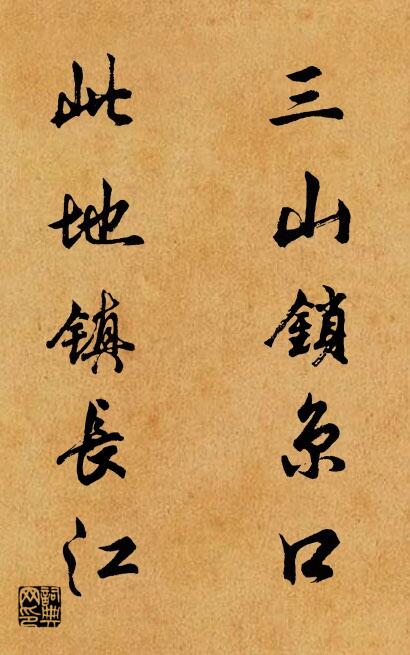 三山鎖京口
此地鎮長江
詞典网印